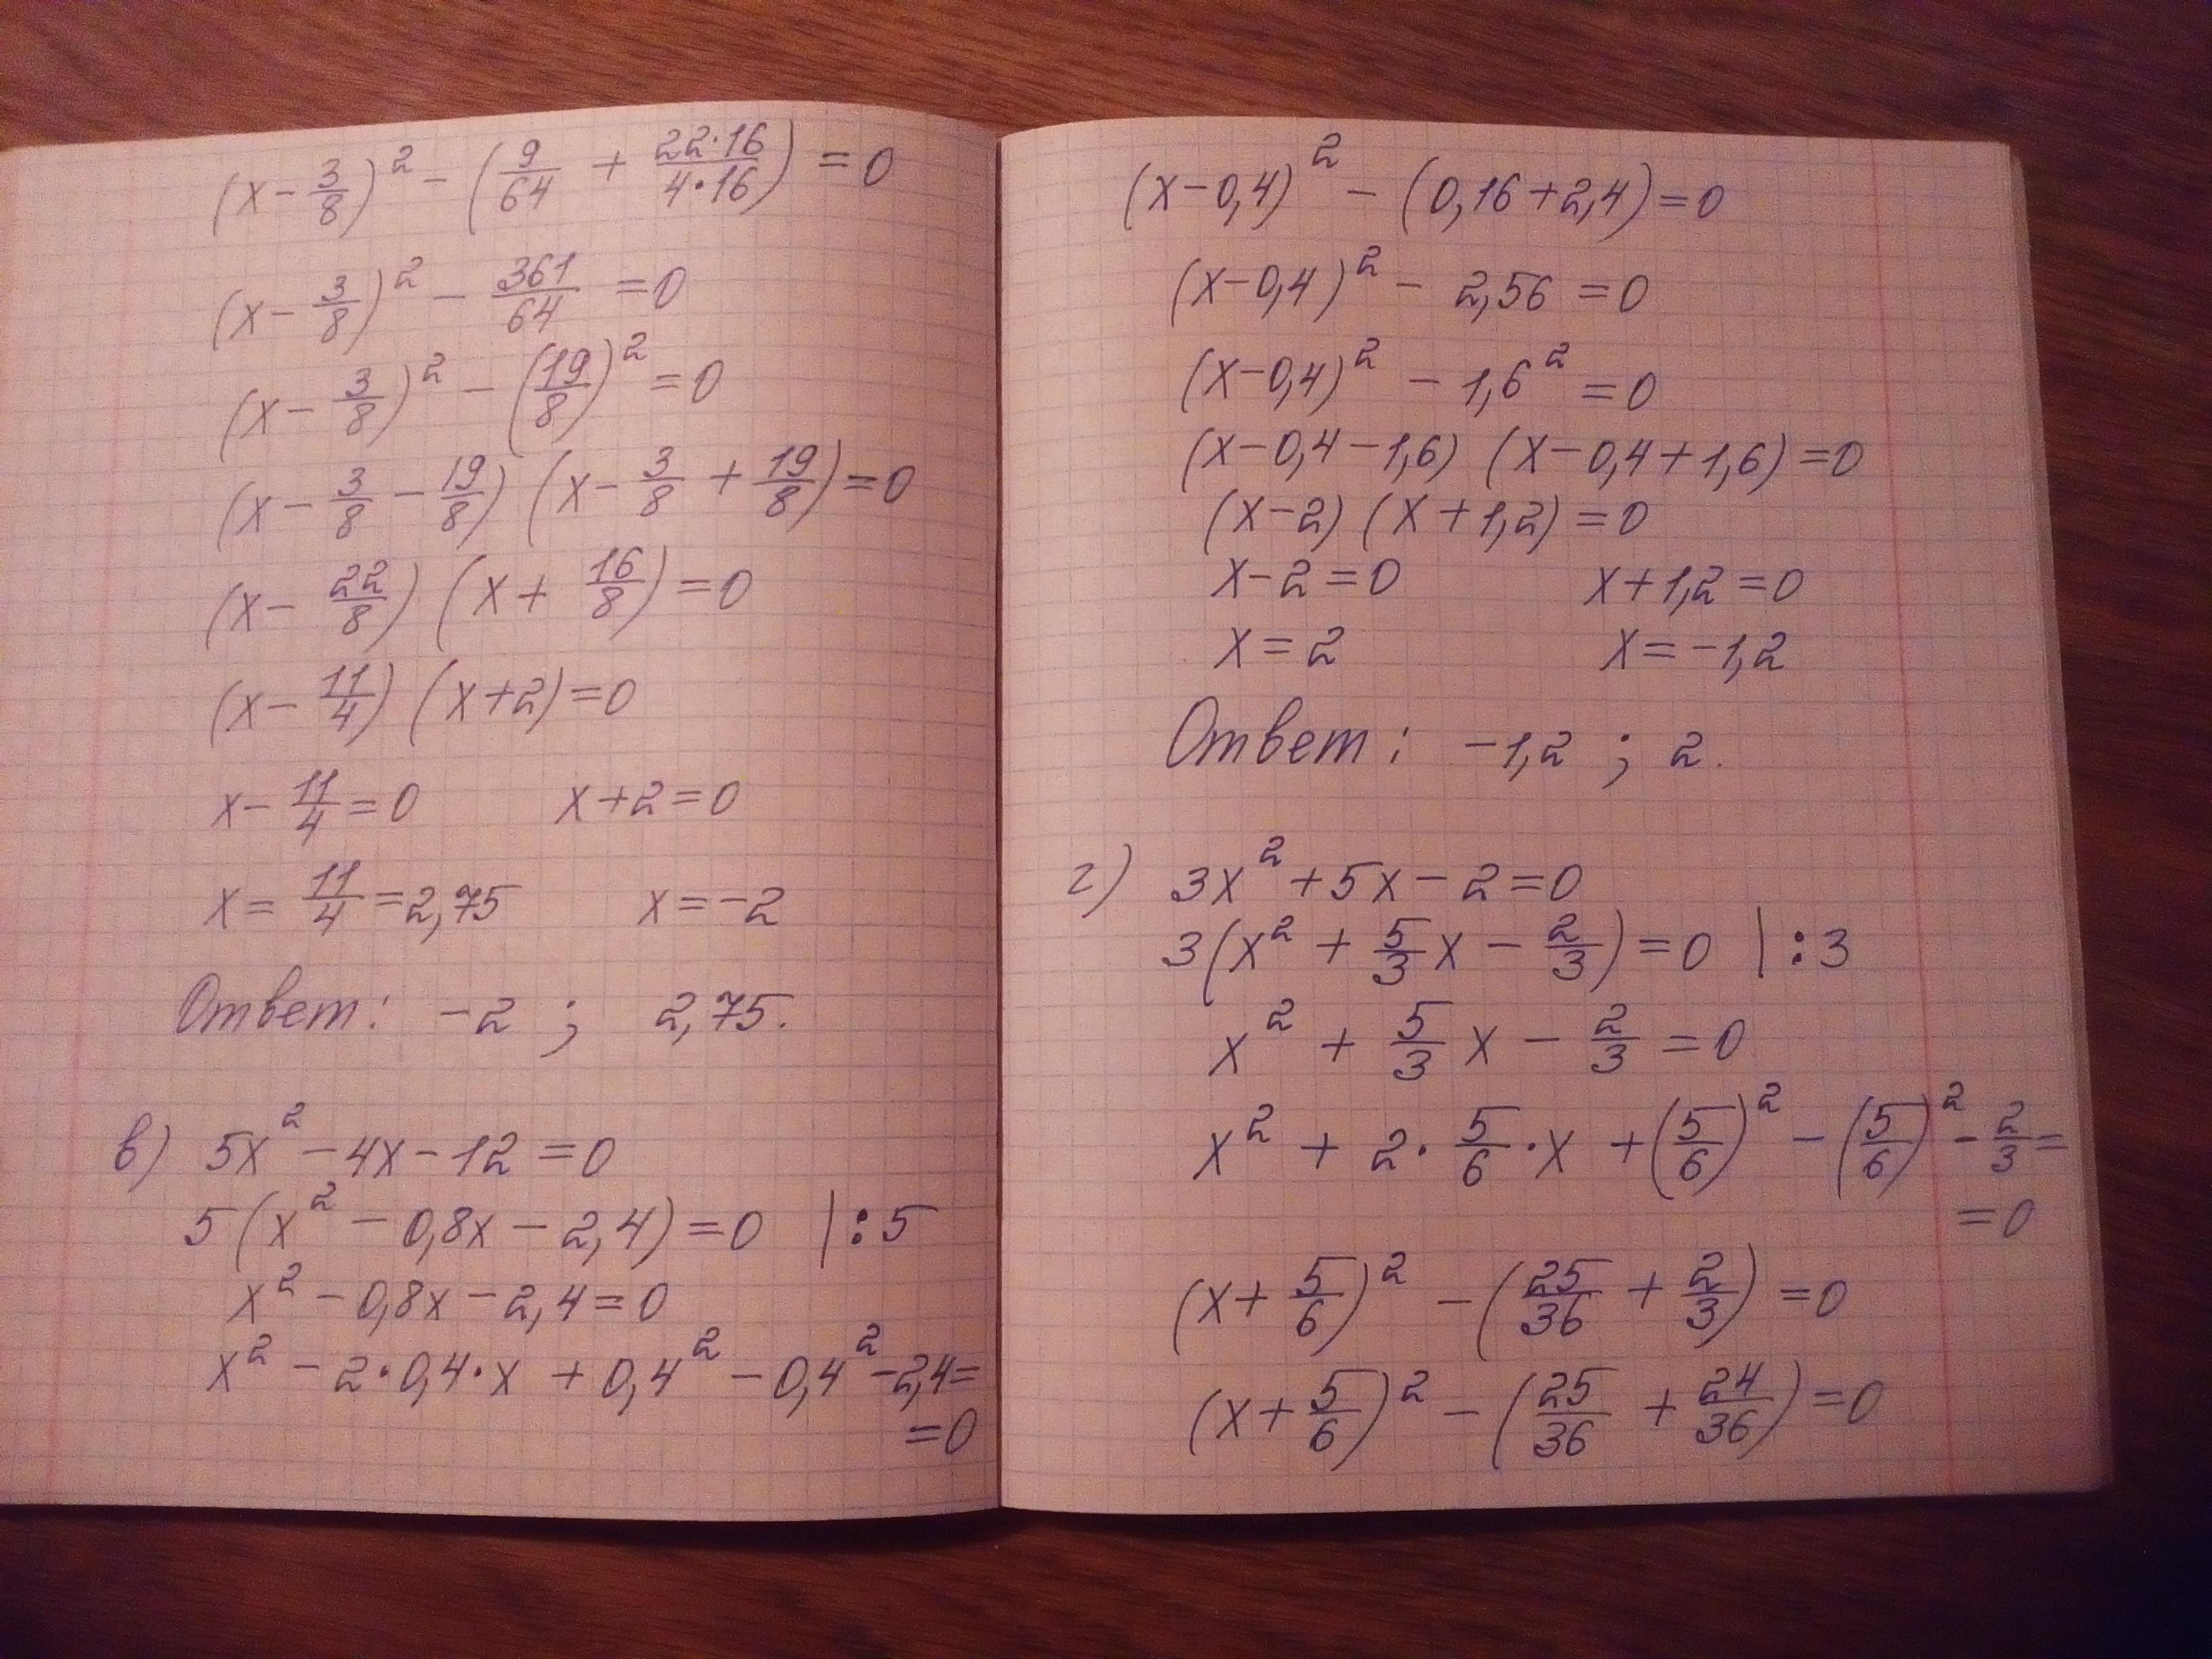 (x - 3/8)² - (9/64 + 22·16/4·16) = 0
(x - 3/8)² - 361/64 = 0
(x - 3/8)² - (19/8)² = 0
(x - 3/8 - 19/8) (x - 3/8 + 19/8) = 0
(x - 22/8) (x + 16/8) = 0
(x - 11/4) (x + 2) = 0
x - 11/4 = 0   x + 2 = 0
x = 11/4 = 2,75   x = -2
Ответ: -2 ; 2,75.
в) 5x² - 4x - 12 = 0
5(x² - 0,8x - 2,4) = 0 | : 5
x² - 0,8x - 2,4 = 0
x² - 2·0,4·x + 0,4² - 0,4² - 2,4 =
= 0
(x - 0,4)² - (0,16 + 2,4) = 0
(x - 0,4)² - 2,56 = 0
(x - 0,4)² - 1,6² = 0
(x - 0,4 - 1,6) (x - 0,4 + 1,6) = 0
(x - 2) (x + 1,2) = 0
x - 2 = 0   x + 1,2 = 0
x = 2   x = -1,2
Ответ: -1,2 ; 2.
г) 3x² + 5x - 2 = 0
3(x² + 5/3 x - 2/3) = 0 | : 3
x² + 5/3 x - 2/3 = 0
x² + 2 · 5/6 · x + (5/6)² - (5/6)² - 2/3 =
= 0
(x + 5/6)² - (25/36 + 2/3) = 0
(x + 5/6)² - (25/36 + 24/36) = 0